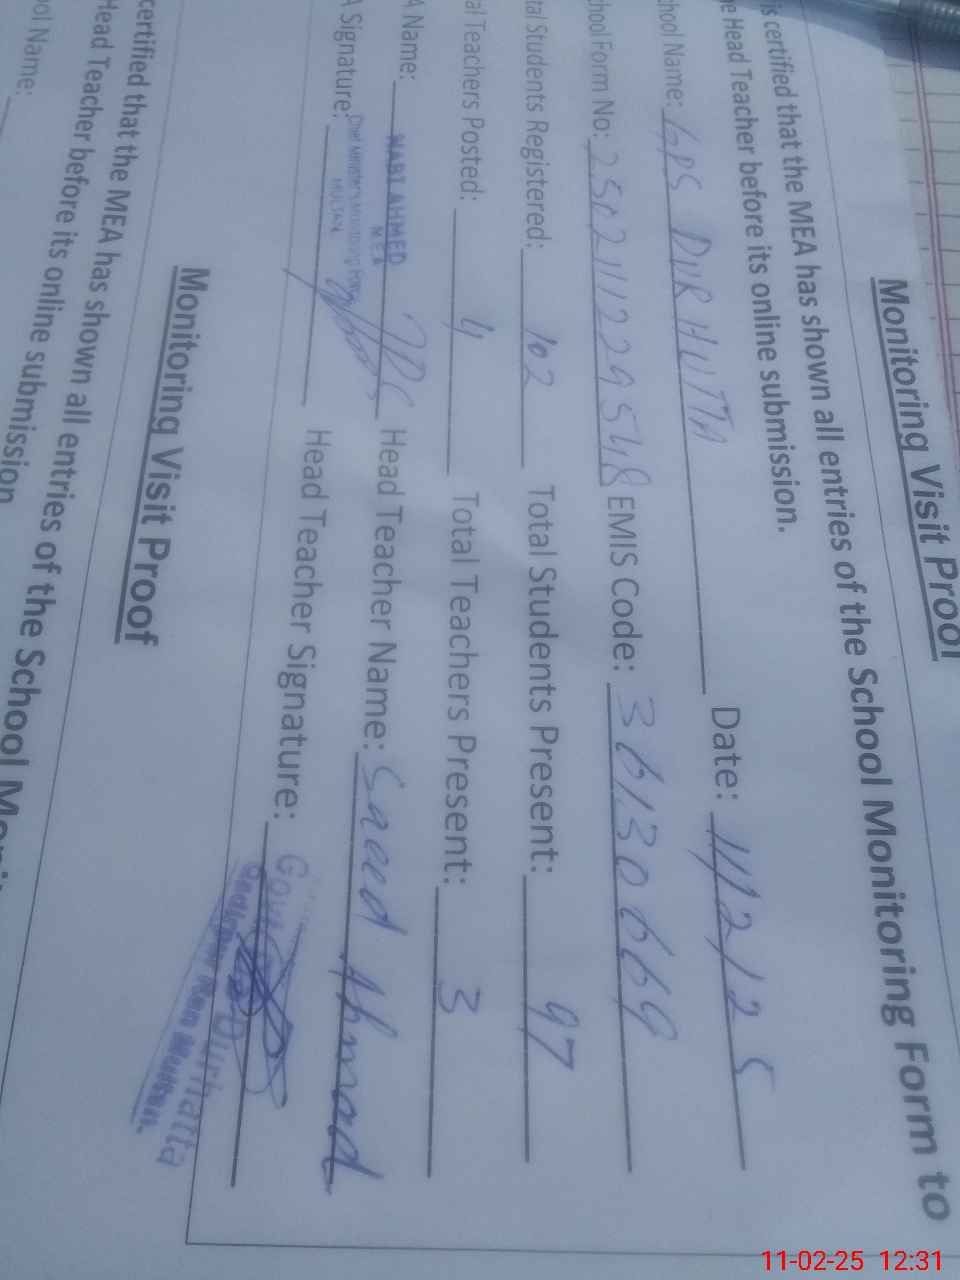 Monitoring Visit Proof
is certified that the MEA has shown all entries of the School Monitoring Form to
e Head Teacher before its online submission.
chool Name: GPS DURHUTTA Date: 11/2/25
chool Form No: EMIS Code: 36130669
tal Students Registered: 102 Total Students Present: 97
al Teachers Posted: 4 Total Teachers Present: 3
A Name: NABI AHMED MEA Head Teacher Name: Saeed Ahmad
A Signature: Chief Minister's Monitoring Force MULTAN Head Teacher Signature:
Monitoring Visit Proof
certified that the MEA has shown all entries of the School Moni
Head Teacher before its online submission
ol Name:
11-02-25 12:31